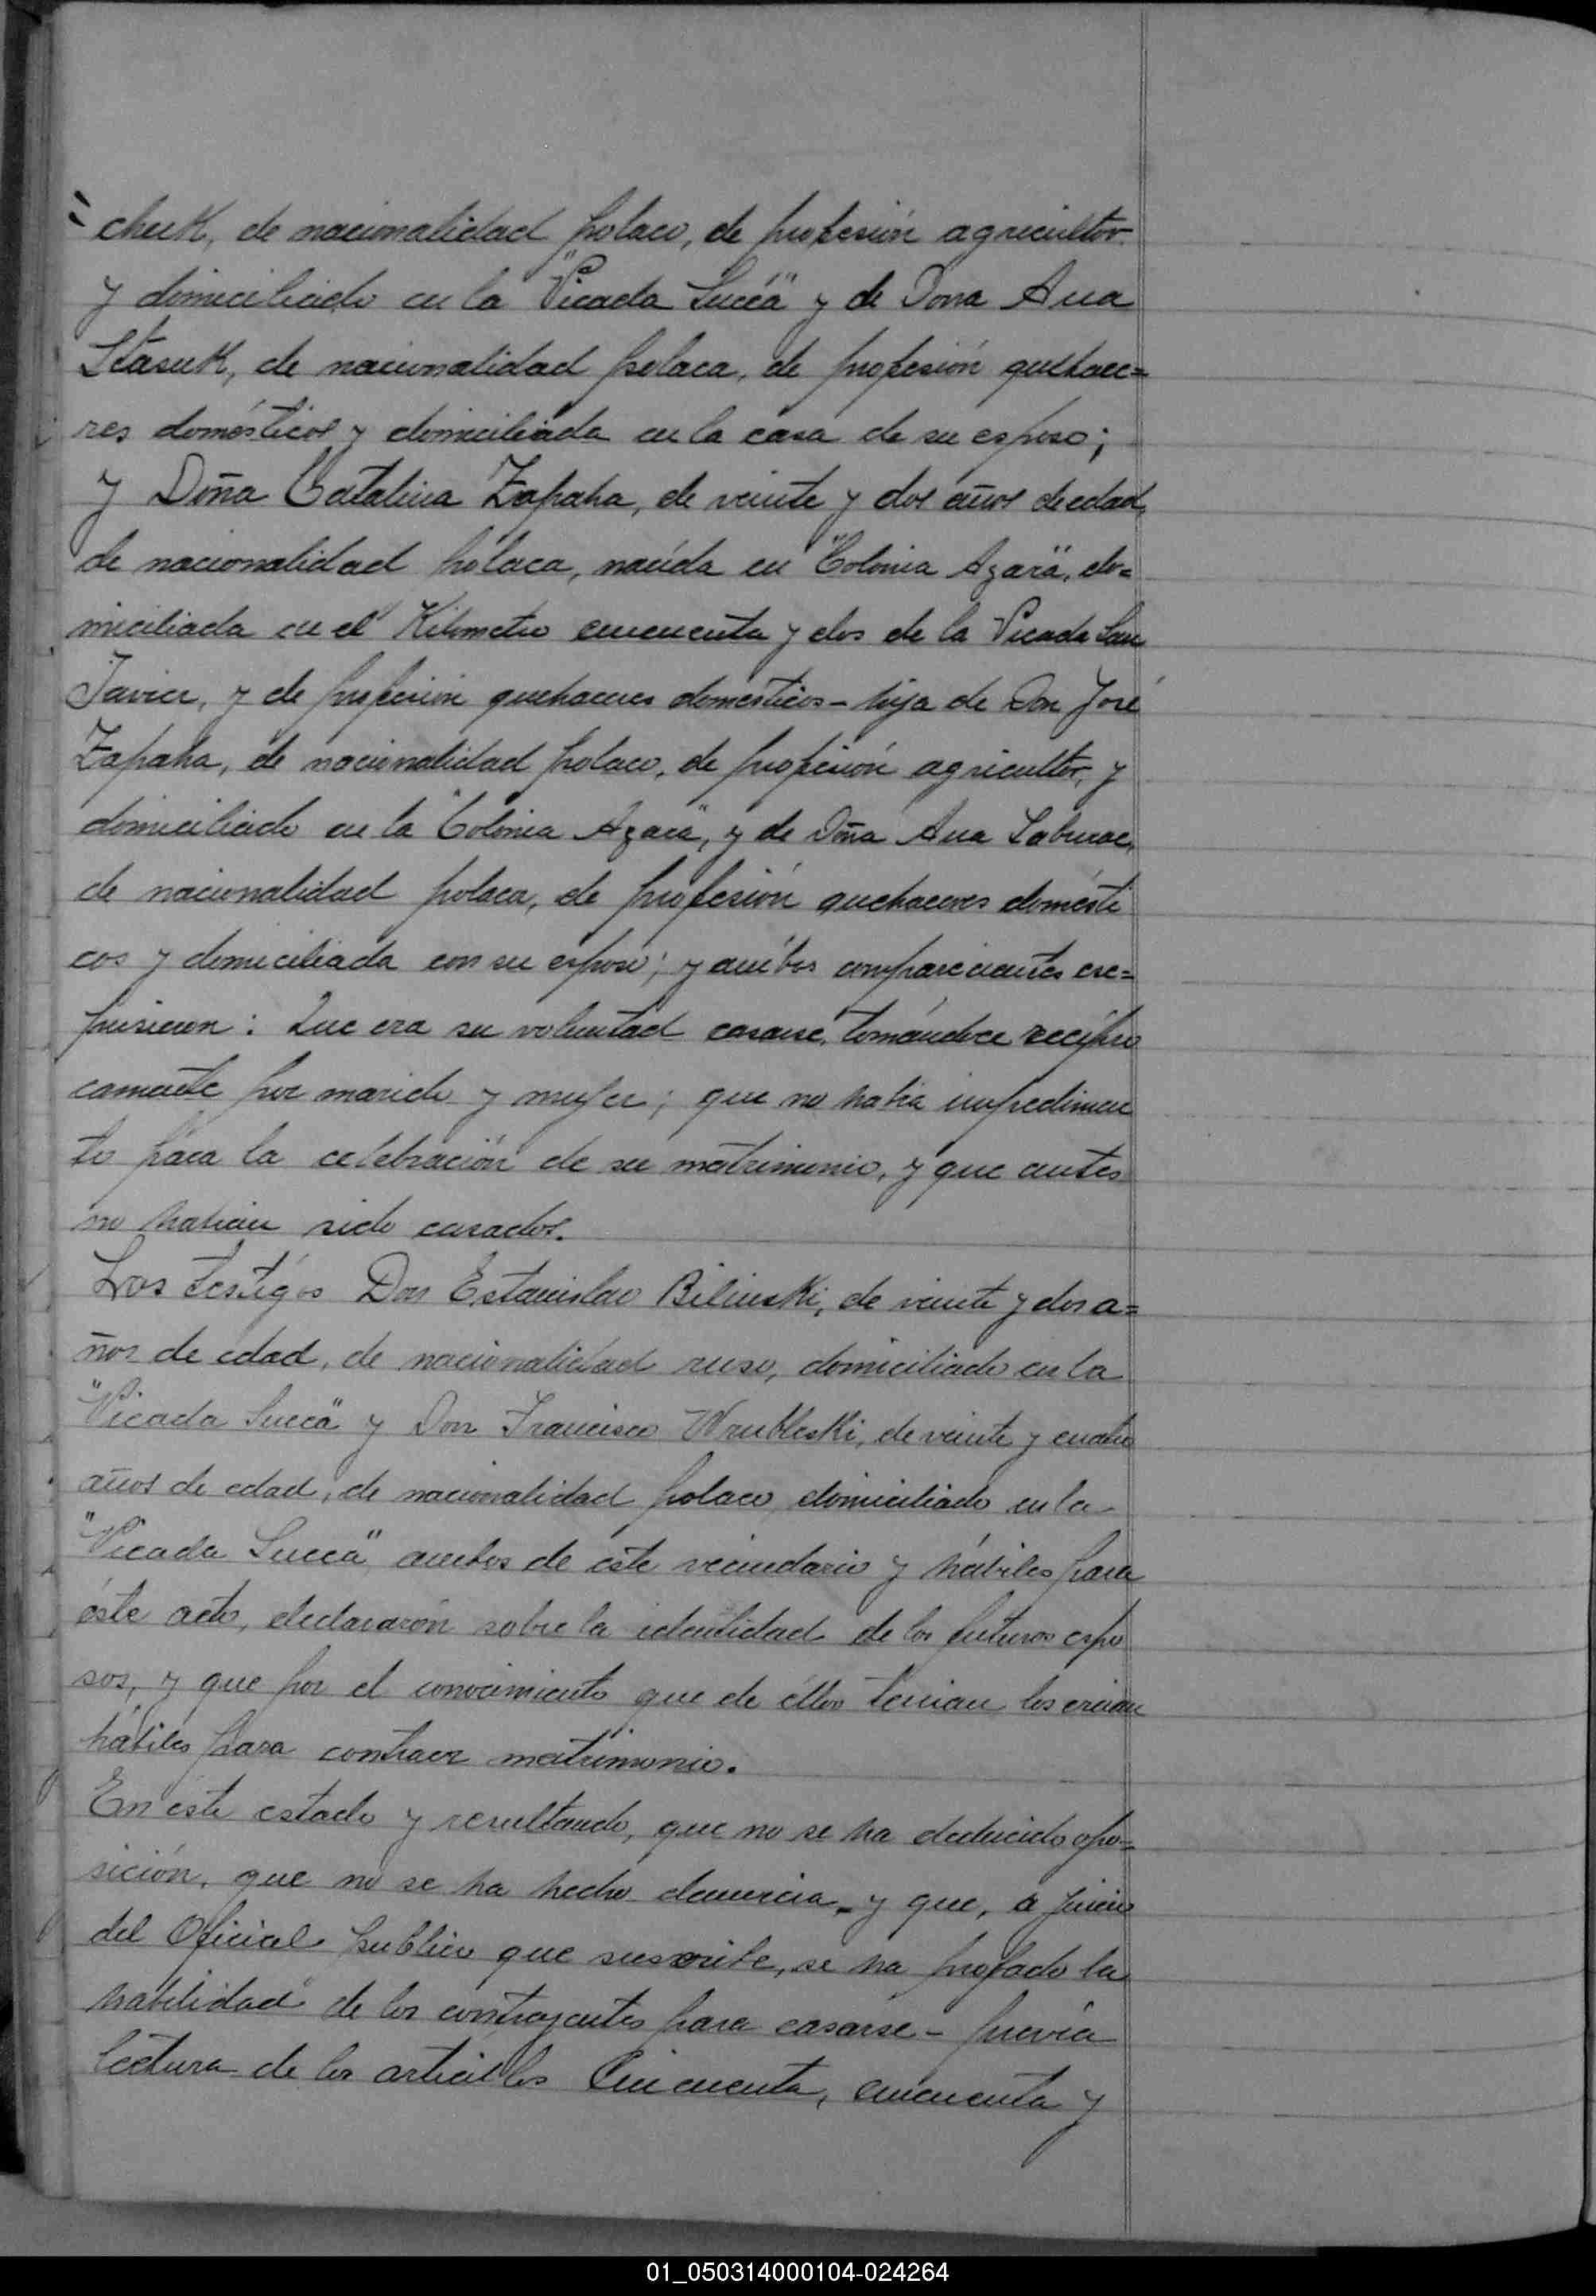 =chuk, de nacionalidad polaco, de profesión agricultor
y domiciliado en la "Picada Sueca" y de Dona Ana
Stasuk, de nacionalidad polaca, de profesión quehace=
res domésticos y domiciliada en la casa de su esposo;
y Doña Catalina Zapaha, de veinte y dos años de edad,
de nacionalidad polaca, nacída en "Colonia Azara", do=
miciliada en el Kilometro cincuenta y dos de la Picada San
Javier, y de profesión quehaceres domesticos - hija de Don José
Zapaha, de nacionalidad polaco, de profesión agricultor, y
domiciliado en la "Colonia Azara", y de Doña Ana
de nacionalidad polaca, de profesión quehaceres domésti
cos y domiciliada con su esposo; y ambos comparecientes ex=
pusieron: Que era su voluntad casarse, tomándoce recípro
camente por marido y mujer; que no habia impedimen
to para la celebración de su matrimonio, y que antes
no habian sido casados.
Los testigos Don Estanislao Bilinski, de veinte y dos a=
ños de edad, de nacionalidad ruso, domiciliado en la
"Picada Sueca" y Don Francisco Wrubleski, de veinte y cuatro
años de edad, de nacionalidad polaco domiciliado en la
"Picada Sueca" ambos de éste vecindario y hábiles para
éste acto, declararón sobre la identidad de los futuros espo
sos, y que por el conocimiento que de éllos tenian los creian
hábiles para contraer matrimonio.
En éste estado y resultando, que no se ha deducido opo=
sición, que no se ha hecho denuncia, y que, a juicio
del Oficial Publico que suscribe, se ha probado la
habilidad de los contrayentes para casarse - previa
lectura de los articulos Cincuenta, cincuenta y
01_050314000104-024264